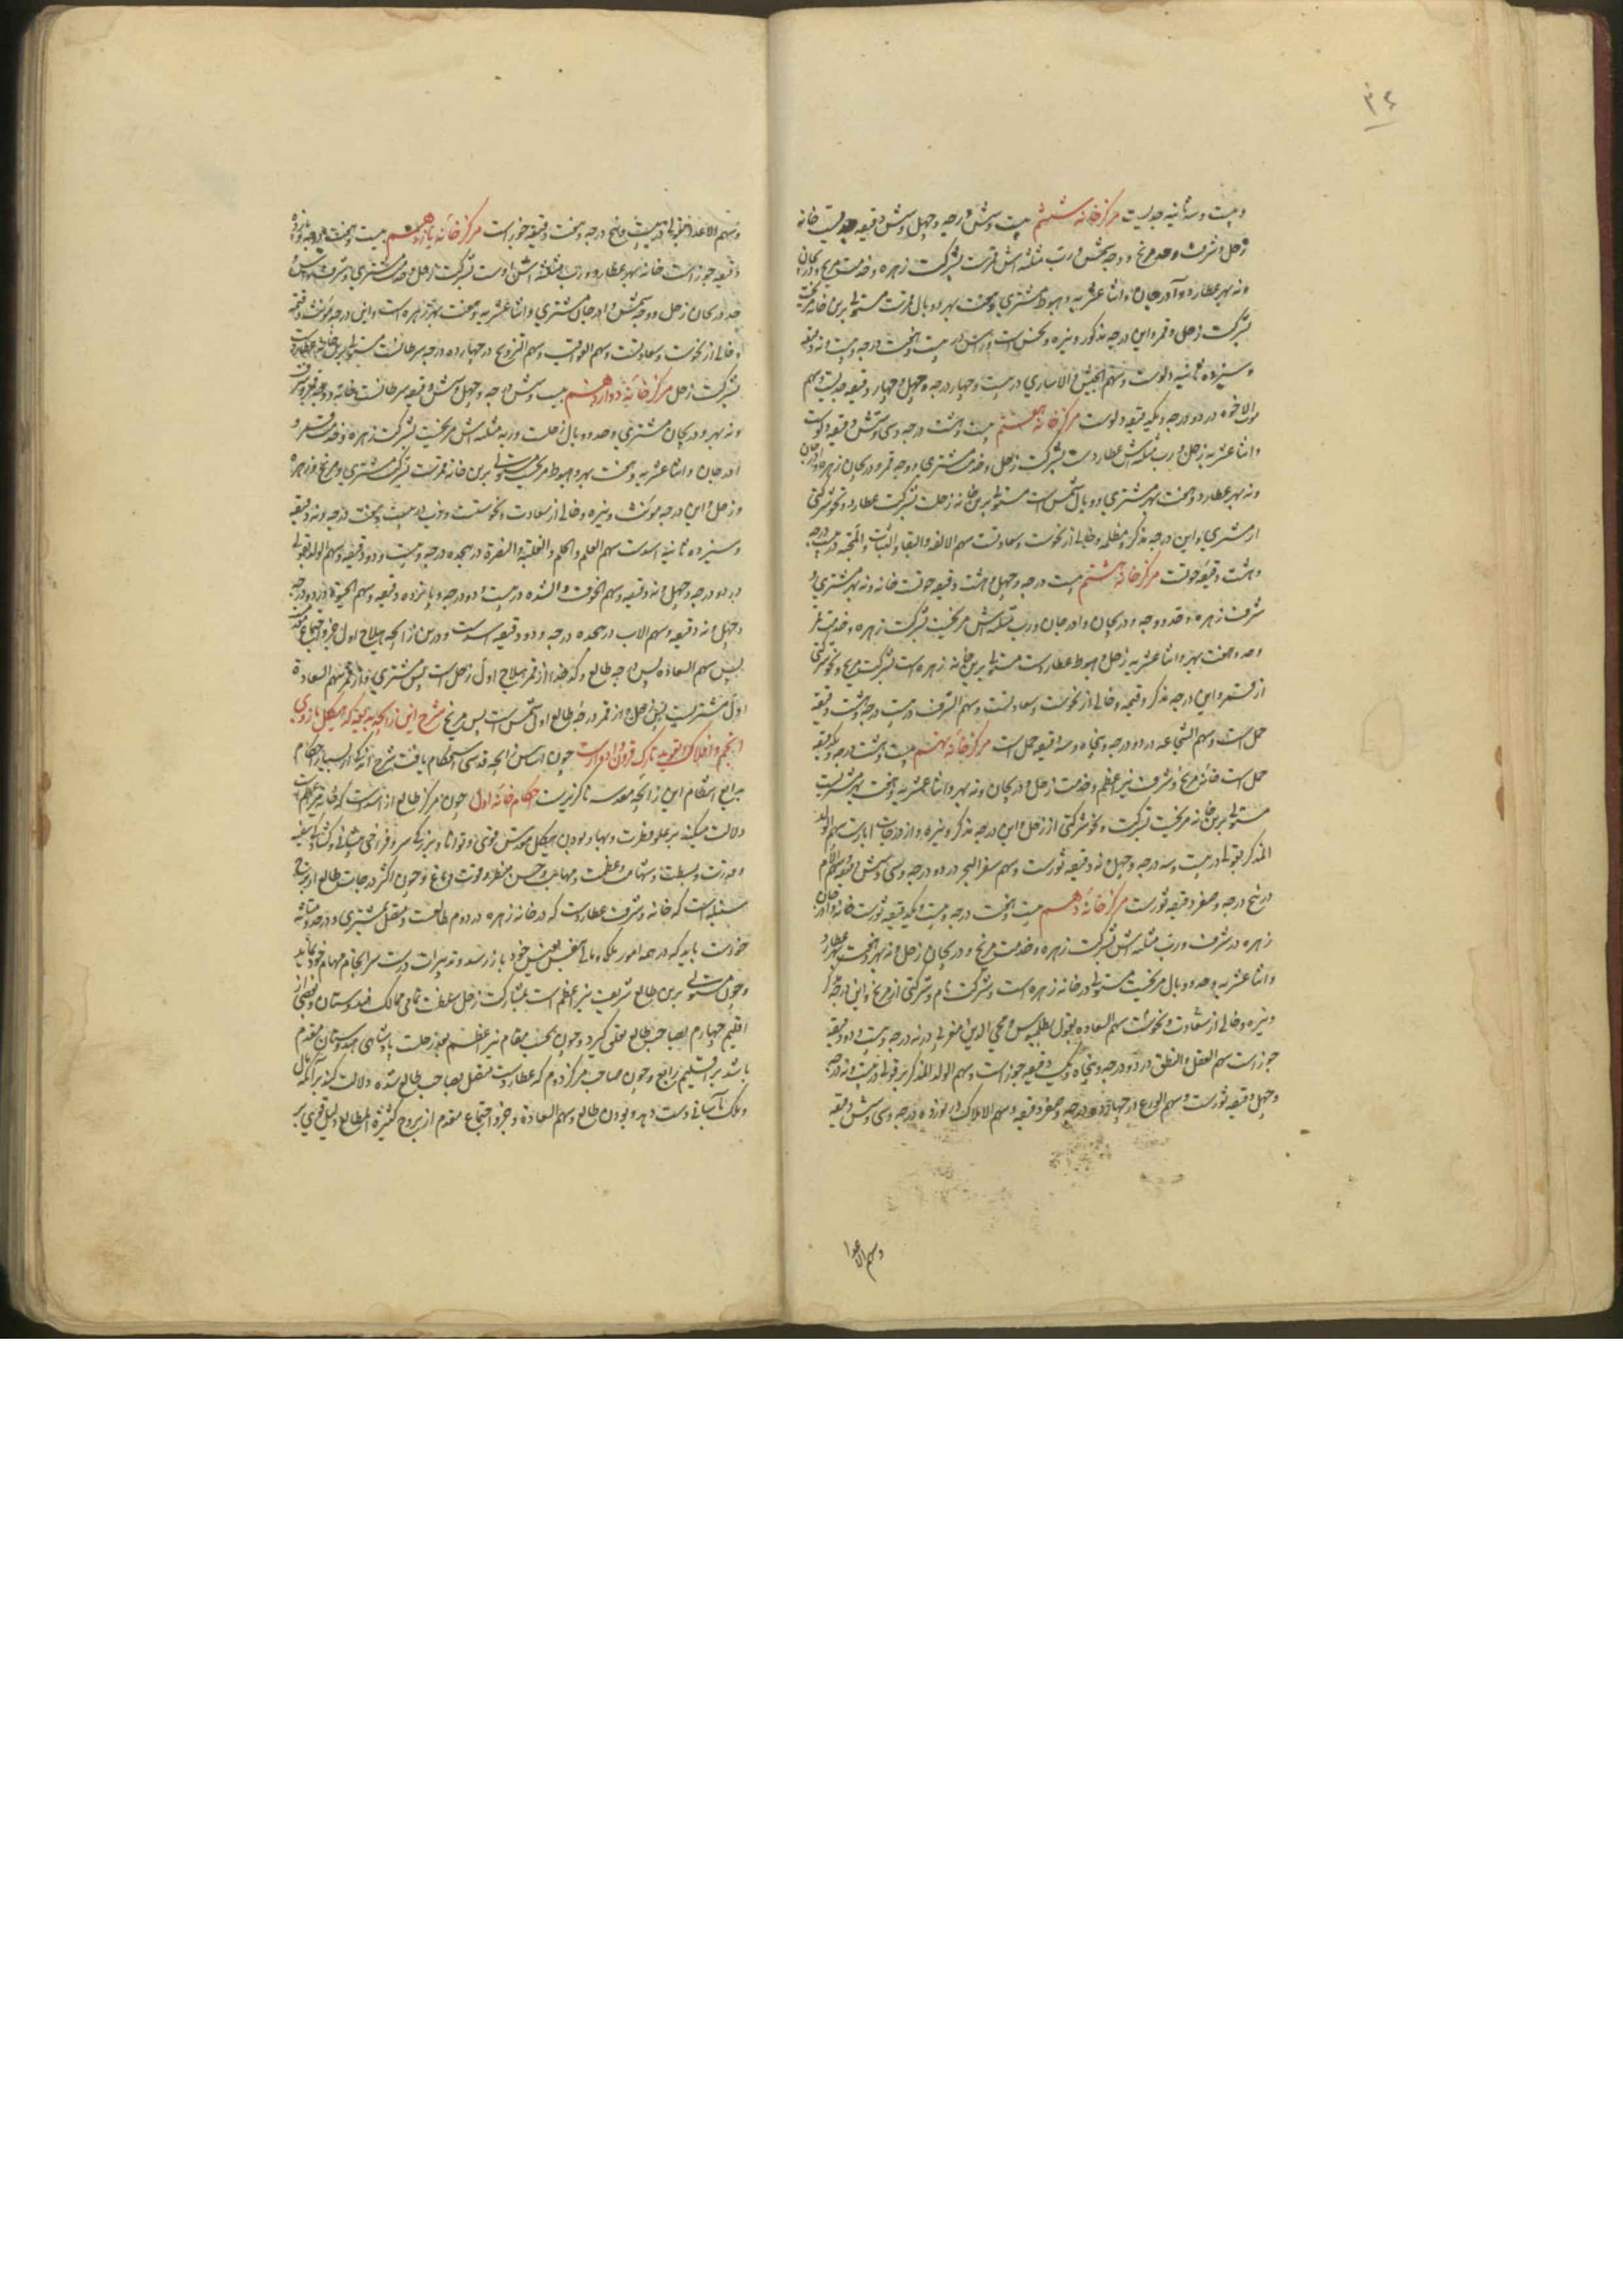 ۳۴
و بیست و سه ثانیه جدیست مرکز خانهٔ ششم بیست و شش درجه و چهل و شش دقیقه جدیست خانه
زحل و شرف و حد مریخ و وجه شمس و رب مثلثه اش قمرست بشرکت زهره و خدمت مریخ و دریجان
و نه بهر عطارد و آدرجان و اثنا عشریه و هبوط مشتری و هفت بهر و وبال قمرست مستولی برین خانه مریخست
بشرکت زحل و قمر و این درجه مذکور و نیره و نحس است و راس در بیست و هفت درجه و بیست و نه دقیقه
و سیزده ثانیه دلوست و سهم الجیش و الاساری در بیست و چهار درجه و چهل و چهار دقیقه جدیست و سهم
موت الاخوه در دو درجه و یکدقیقه دلوست مرکز خانهٔ هفتم بیست و هشت درجه و سی و شش دقیقه دلوست
و اثنا عشریه زحل و رب مثلثه اش عطاردست بشرکت زحل و خدمت مشتری و وجه قمر و دریجان زهره و ادرجان
و نه بهر عطارد و هفت بهر مشتری و وبال شمس است مستولی برین خانه زحلست بشرکت عطارد و نحو شرکتی
از مشتری و این درجه مذکر و مظلمه و خالی از نحوست و سعادتست سهم الالفه و البقا و الثبات و المحبه در بیست درجه
و هشت دقیقه حوتست مرکز خانهٔ هشتم بیست درجه و چهل و هشت دقیقه حوتست خانه و نه بهر مشتری و
شرف زهره و حد و وجه و دریجان و ادرجان و رب مثلثه اش مریخست بشرکت زهره و خدمت قمر
و حد و هفت بهر و اثنا عشریه زحل و هبوط عطاردست مستولی برین خانه زهره است بشرکت مریخ و نحو شرکتی
از قمر و این درجه مذکر و قیمه و خالی از نحوست و سعادتست و سهم الشرف در بیست درجه و شش دقیقه
حمل است و سهم الشجاعه در دو درجه و پنجاه و سه دقیقه حمل است مرکز خانهٔ نهم بیست و هشت درجه و یکدقیقه
حمل است خانهٔ مریخ و شرف نیر اعظم و خدمت زحل و دریجان و نه بهر و اثنا عشریه و هفت بهر مشتریست
مستولی برین خانه مریخست بشرکت و نحو شرکتی از زحل و این درجه مذکر و نیره و از درجات ابارست سهم الولد
المذکر بقولی در بیست و سه درجه و چهل و نه دقیقه ثورست و سهم سفر البحر در ده درجه و سی و شش دقیقه و سهم الام
در پنج درجه و صفر دقیقه ثورست مرکز خانهٔ دهم بیست و هفت درجه و بیست و یکدقیقه ثورست خانه و ادرجان
زهره در شرف و رب مثلثه اش بشرکت زهره و خدمت مریخ و دریجان زحل و نه بهر و هفت بهر عطارد
و اثنا عشریه و حد و وبال مریخست مستولی در خانه زهره است و شرکت تام و شرکتی از مریخ و این درجه مذکر
و نیره و خالی از سعادت و نحوست سهم السعاده بقول بطلمیوس و محی الدین مغربی در نه درجه و بیست و دو دقیقه
جوزاست سهم العقل و النطق در دو درجه و پنجاه و یک دقیقه جوزاست و سهم الولد المذکر بر قولی در بیست و نه درجه
و چهل دقیقه ثورست و سهم الورع در چهارده درجه و صفر دقیقه و سهم الاملاک در نوزده درجه و سی و شش دقیقه
و سهم الاعدا
و سهم الاعدا بقولی در بیست و پنج درجه و هفت دقیقه جوزاست مرکز خانهٔ یازدهم بیست و هفت درجه و نوزده
دقیقه جوزاست خانه و نه بهر عطارد و رب مثلثه اش اوست بشرکت زحل و خدمت مشتری و شرف راس و
حد و دریجان زحل و وجه شمس و ادرجان مشتری و اثنا عشریه و هفت بهر زهره است و این درجه مؤنث و قیمه
و خالی از نحوست و سعادتست و سهم العواقب و سهم التزویج در چهارده درجه سرطانست مستولی برین خانه عطاردست
بشرکت زحل مرکز خانهٔ دوازدهم بیست و شش درجه و چهل و شش دقیقه سرطانست خانه و وجه قمر و شرف
و نه بهر و دریجان مشتری و حد و وبال زحلست و رب مثلثه اش مریخست بشرکت زهره و خدمت قمر و
ادرجان و اثنا عشریه و هفت بهر و هبوط مریخست مستولی برین خانه قمرست بشرکت مشتری و مریخ و زهره
و زحل و این درجه مؤنث و نیره و خالی از سعادت و نحوستست و ذنب در بیست و هفت درجه و نه دقیقه
و سیزده ثانیه اسدست سهم العلم و الحلم و الغلبة و النصرة در هجده درجه و بیست و دو دقیقه و سهم الولد بقولی
در دو درجه و چهل و نه دقیقه و سهم الخوف و الشده در بیست و دو درجه و پانزده دقیقه و سهم الحیوة در دو درجه
و چهل و نه دقیقه و سهم الاب در هجده درجه و دو دقیقه اسدست و درین زایجه هیلاج اول جزو اجتماع مقدم
پس سهم السعاده پس درجه طالع و کدخدا از قمر هیلاج اول زحل است پس مشتری و از قمر سهم السعادة
اول مشتریست پس زحل و از قمر درجهٔ طالع اول شمس است پس مریخ شرح این زایجهٔ بدیعه که هیکل بازوی
انجم و افلاک و تعویذ تارک قرون و ادوارست چون اساس زایجه قدسی استحکام یافت شرح اندکی از بسیار احکام
بدایع انتظام این زایجهٔ مقدسه ناگزیرست احکام خانهٔ اول چون مرکز طالع از اسدست که خانهٔ نیر اعظم است
دلالت میکند بر علو فطرت و بها و بودن هیکل مقدس قوی و توانا و بزرگی سر و فراخی پیشانی و گشادگی سینه
و قدرت و بسطت و شهامت و عظمت و مهابت و حسن منظر و قوت دماغ و چون اکثر درجات طالع از برج
سنبله است که خانه و شرف عطاردست که در خانه زهره در دوم طالعست و متصل بمشتری و در حد و مثلثه
خودست باید که در همه امور ملکی و مالی بنفس نفیس خود باز رسد و تدبیرات درست سرانجام مهام خود نماید
و چون مستولی برین طالع شریف نیر اعظم است بمشارکت زحل سلطنت تمامی ممالک هندوستان و بعضی از
اقلیم چهارم بصاحب طالع تعلق گیرد و چون بحسب مقام نیر اعظم بحیز زحلست پادشاهی هندوستان مقدم
باشد بر اقلیم رابع و چون صاحب مرکز دوم که عطاردست متصل بصاحب طالع شده دلالت کند بر آنکه مال
و ملک بآسانی دست دهد و بودن طالع و سهم السعادة و جزو اجتماع مقدم از بروج کثیرة المطالع دلیل قویست بر